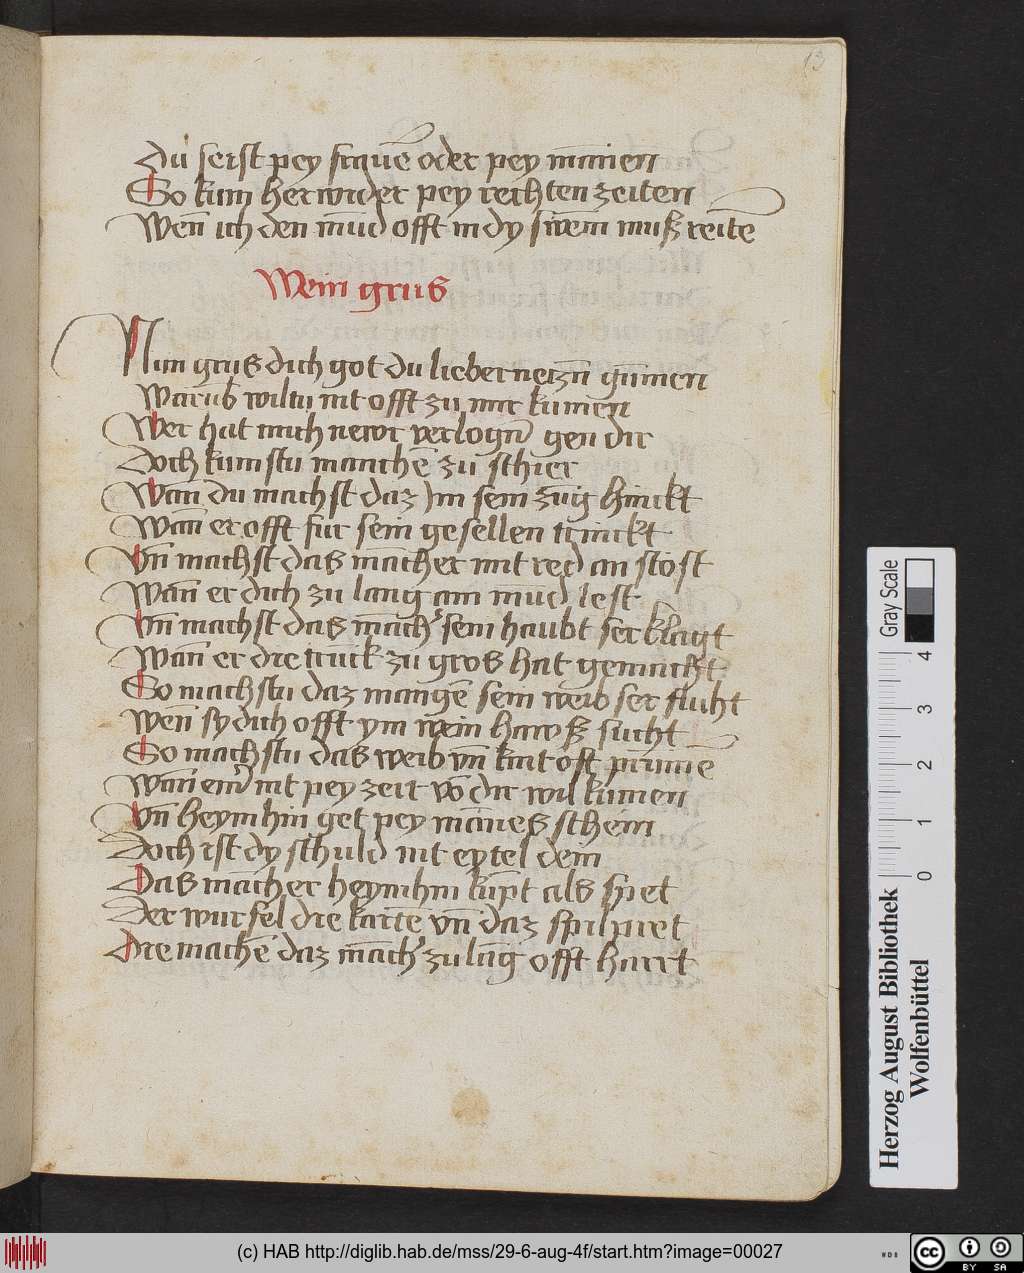 13
Du seist pey frauē oder pey mannen
So kum herwider pey rechten zeiten
Wen̄ ich den mūd offt in dy swem̄ muß reitē
Wein grus
Nun grus dich got du lieber netzn̄ gūmen
Warūb wiltu nit offt zu mir kumen
Wer hat mich newr verlogn̄ gen dir
Doch kumstu manchē zu schier
Wan̄ du machst daz Jm sein zūg hinckt
Wan̄ er offt fur sein gesellen trinckt
Vn̄ machst das mācher mit red an stost
Wan̄ er dich zu lang am mūd lest
Vn̄ machst das māch' sein haubt ser klagt
Wan̄ er die trūck zu gros hat gemacht
So machstu daz mangē sein weib ser flucht
Wen̄ sy dich offt ym wein hawß sucht
So machstu das weib vn̄ kint oft prūmē
Wan̄ einr nit pey zeit vō dir wil kumen
Vn̄ heym hin get pey mānes schein
Doch ist dy schuld nit eytel dein
Das mācher heymhin kūpt als spet
Der wurfel die karte vn̄ daz spilpret
Die machē daz māch' zu lāg offt harrt
Herzog August Bibliothek
Wolfenbüttel
0 1 2 3 4
Gray Scale
(c) HAB http://diglib.hab.de/mss/29-6-aug-4f/start.htm?image=00027
WDB
cc BY SA